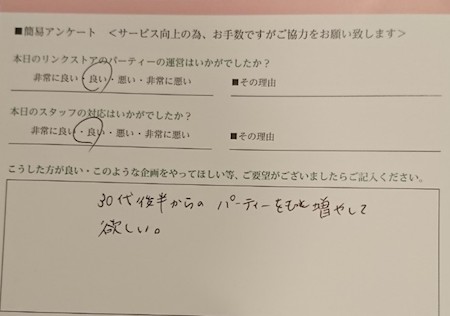 ■簡易アンケート ＜サービス向上の為、お手数ですがご協力をお願い致します＞
本日のリンクストアのパーティーの運営はいかがでしたか？
非常に良い・良い・悪い・非常に悪い ■その理由
本日のスタッフの対応はいかがでしたか？
非常に良い・良い・悪い・非常に悪い ■その理由
こうした方が良い・このような企画をやってほしい等、ご要望がございましたらご記入ください。
30代後半からの パーティーをもっと増やして
欲しい。